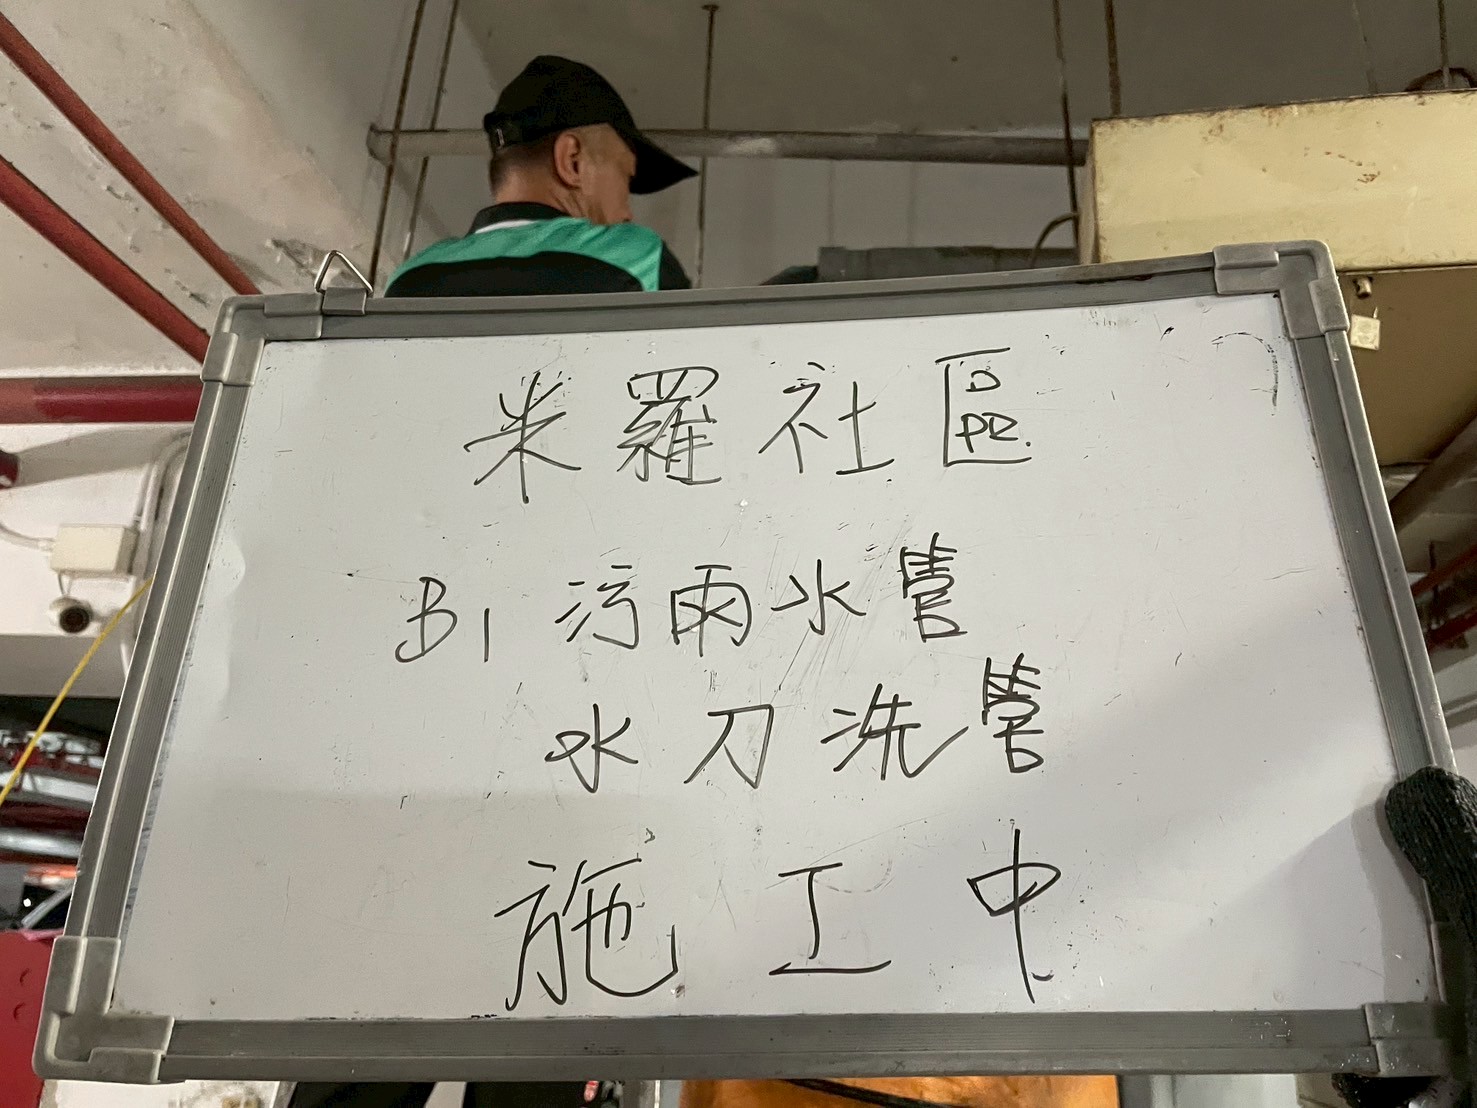 米羅社區
B1 污雨水管
水刀洗管
施工中